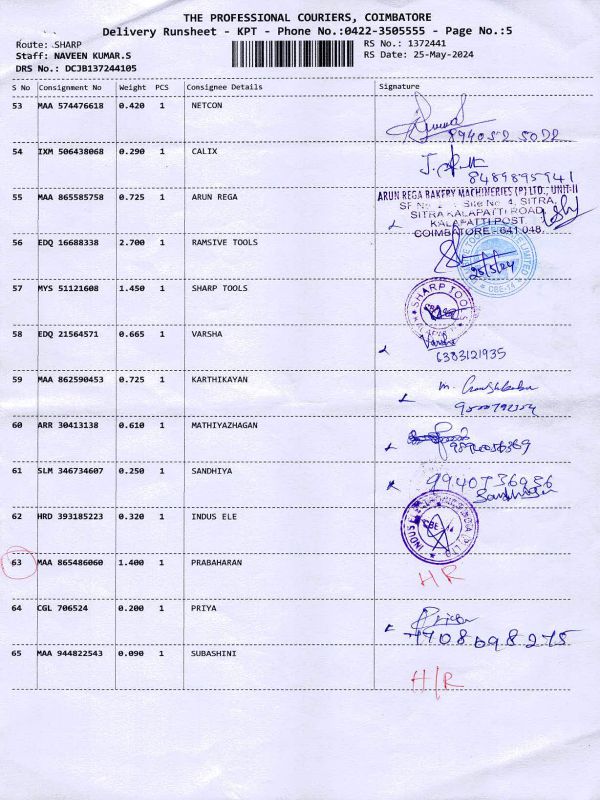 THE PROFESSIONAL COURIERS, COIMBATORE
Delivery Runsheet - KPT - Phone No.:0422-3505555 - Page No.:5
Route: SHARP
RS No.: 1372441
Staff: NAVEEN KUMAR.S
RS Date: 25-May-2024
DRS No.: DCJB137244105
S No Consignment No Weight PCS Consignee Details Signature
53 MAA 574476618 0.420 1 NETCON
89405 2 5022
54 IXM 506438068 0.290 1 CALIX
8489895941
55 MAA 865585758 0.725 1 ARUN REGA
ARUN REGA BAKERY MACHINERIES (P) LTD., UNIT-II
Site No 4, SITRA,
SITRA KALAPATTI ROAD
KALAPATTI POST
COIMBATORE - 641 048.
56 EDQ 16688338 2.700 1 RAMSIVE TOOLS
25/5/24
CBE-14
57 MYS 51121608 1.450 1 SHARP TOOLS
SHARP TOOLS
58 EDQ 21564571 0.665 1 VARSHA
Varsha
6383121935
59 MAA 862590453 0.725 1 KARTHIKAYAN
60 ARR 30413138 0.610 1 MATHIYAZHAGAN
61 SLM 346734607 0.250 1 SANDHIYA
9940736936
Sandhiya
62 HRD 393185223 0.320 1 INDUS ELE
63 MAA 865486060 1.400 1 PRABAHARAN
HR
64 CGL 706524 0.200 1 PRIYA
Priya
7708698275
65 MAA 944822543 0.090 1 SUBASHINI
H/R